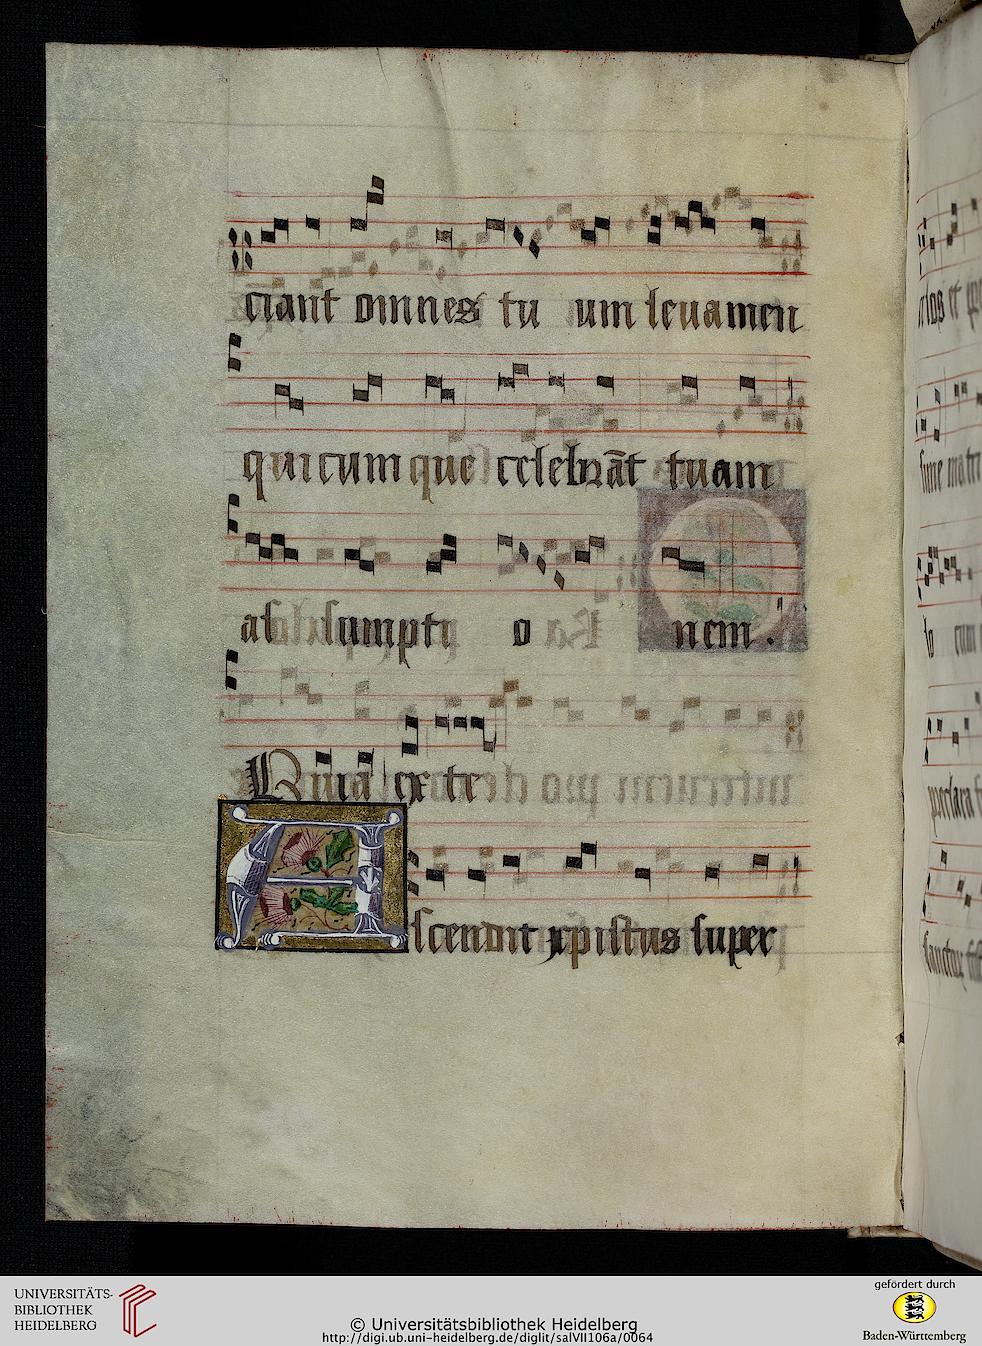 ciant omnes tu um levamen
quicumque celebrāt tuam
assumpti o nem .
Quia exte
Ascendit xpistus super
UNIVERSITÄTS-
BIBLIOTHEK
HEIDELBERG
© Universitätsbibliothek Heidelberg
http://digi.ub.uni-heidelberg.de/diglit/salVII106a/0064
gefördert durch
Baden-Württemberg